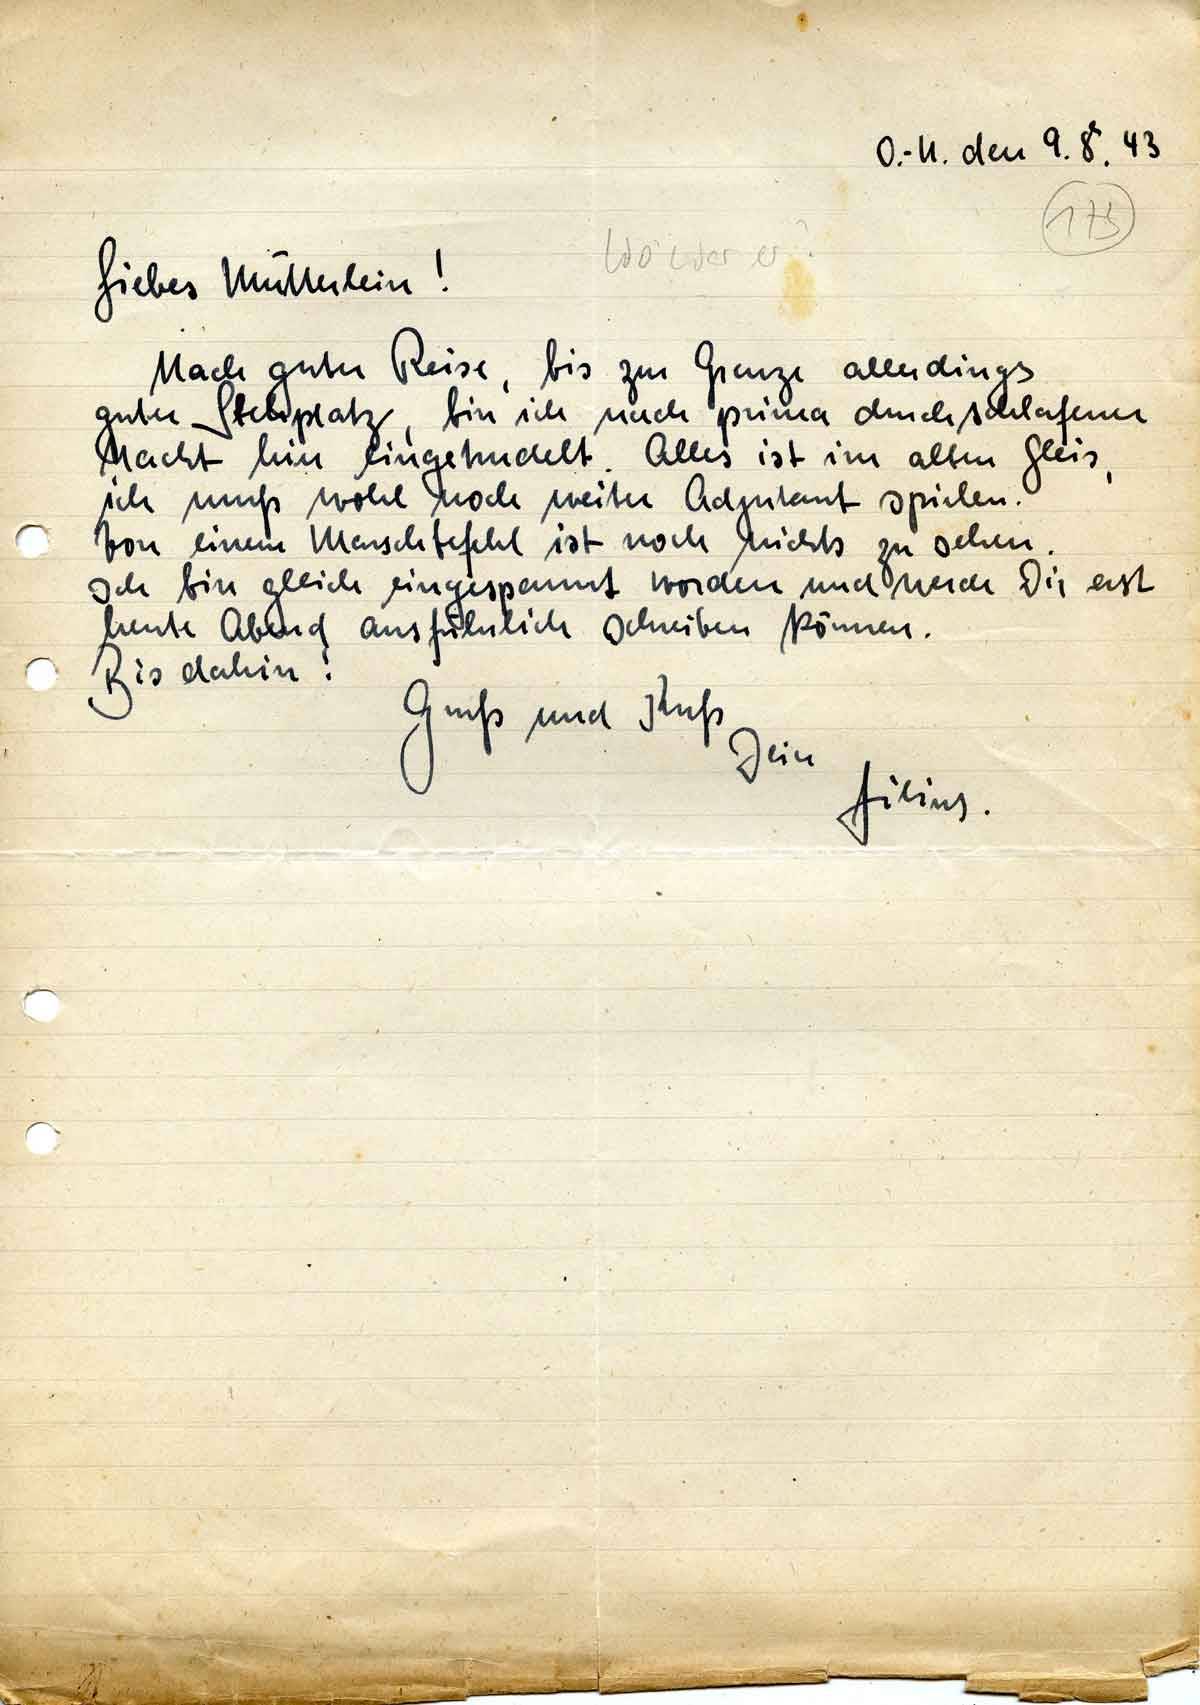 O.-U. den 9.8.43
175
Wo war er?
Liebes Mütterlein!
Nach guter Reise, bis zur Grenze allerdings
guter Stehplatz, bin ich nach prima durchschlafener
Nacht hier eingetrudelt. Alles ist im alten Gleis,
ich muß wohl noch weiter Adjutant spielen.
Von einem Marschbefehl ist noch nichts zu sehen.
Ich bin gleich eingespannt worden und werde Dir erst
heute Abend ausführlich schreiben können.
Bis dahin!
Gruß und Kuß
Dein
Filius.